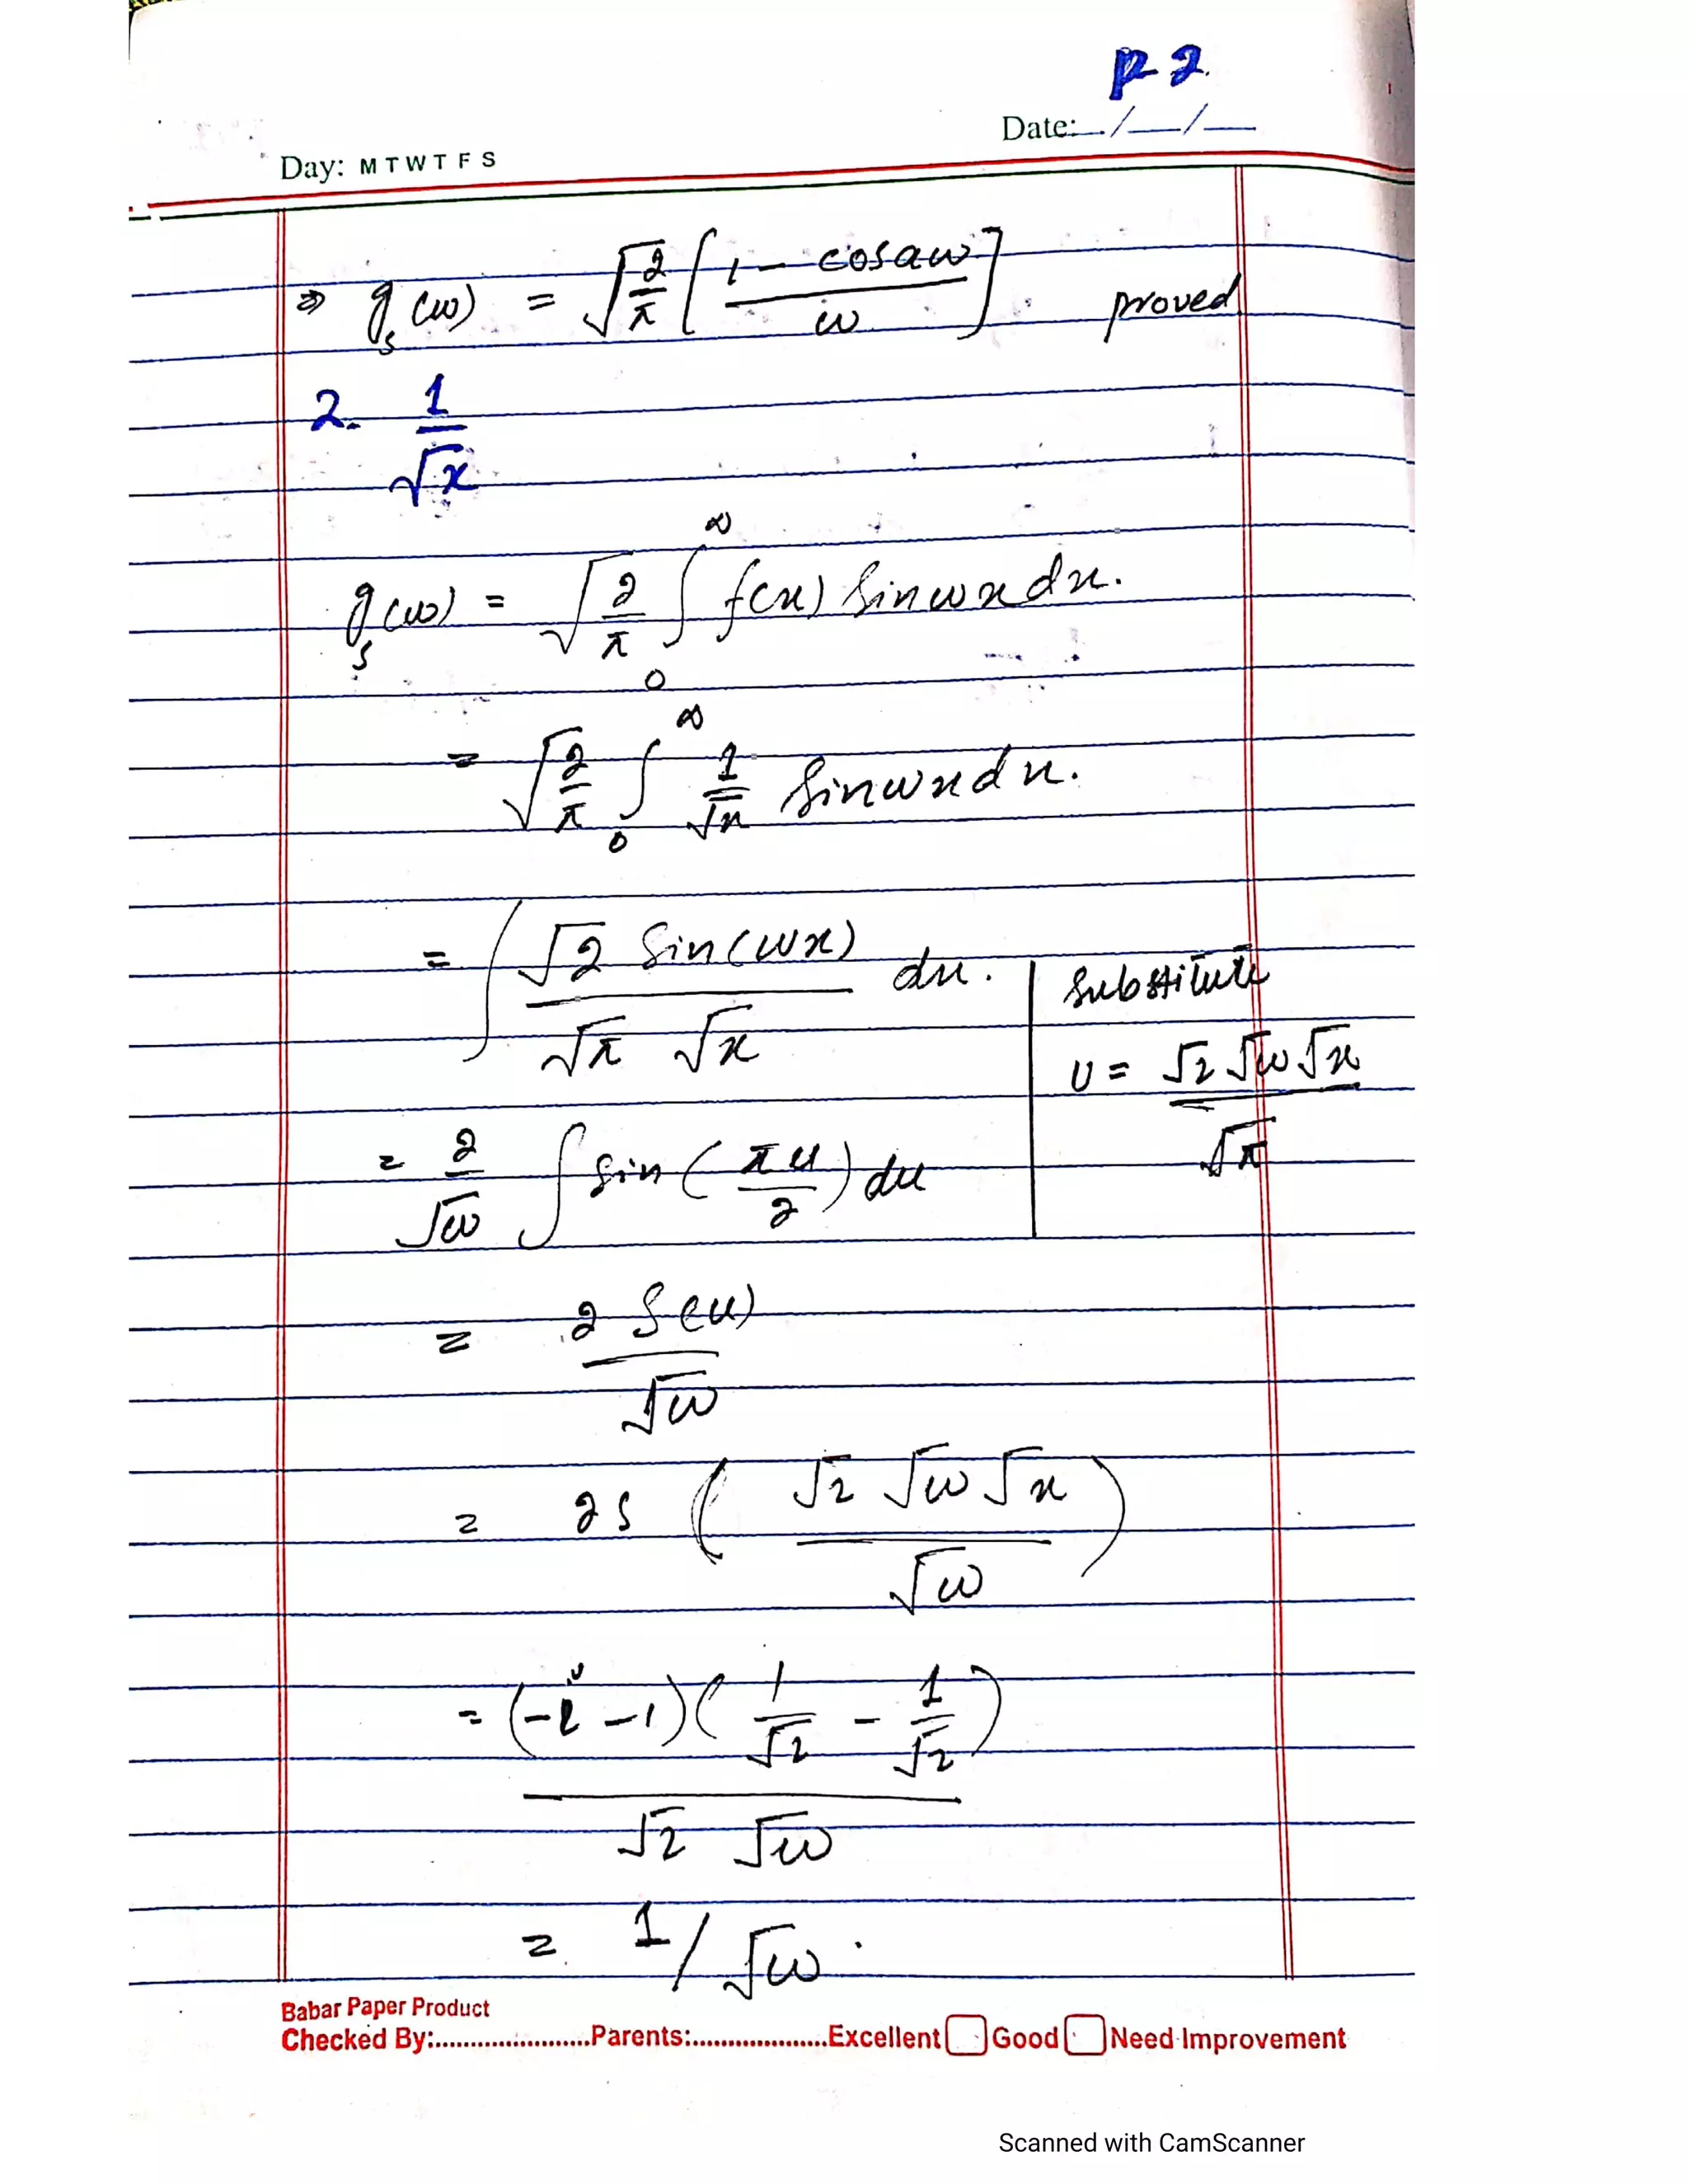 P-2
Date: / /
Day: M T W T F S
⇒ g_s(ω) = √(2/π) [(1 - cosaω)/ω] proved
2. 1/√x
g_s(ω) = √(2/π) ∫_0^∞ f(x) Sinωxdx.
= √(2/π) ∫_0^∞ 1/√x Sinωxdx.
= ∫ (√2 Sin(ωx))/(√π √x) dx.
Substitute
U = (√2 √ω √x)/√π
= 2/√ω ∫ Sin(πu/2) du
= 2 S(u)/√ω
= 2S (√2 √ω √x/√ω)
= (-i -1)(1/√2 - 1/√2)/(√2 √ω)
= 1/√ω.
Babar Paper Product
Checked By:......................Parents:...................Excellent Good Need Improvement
Scanned with CamScanner